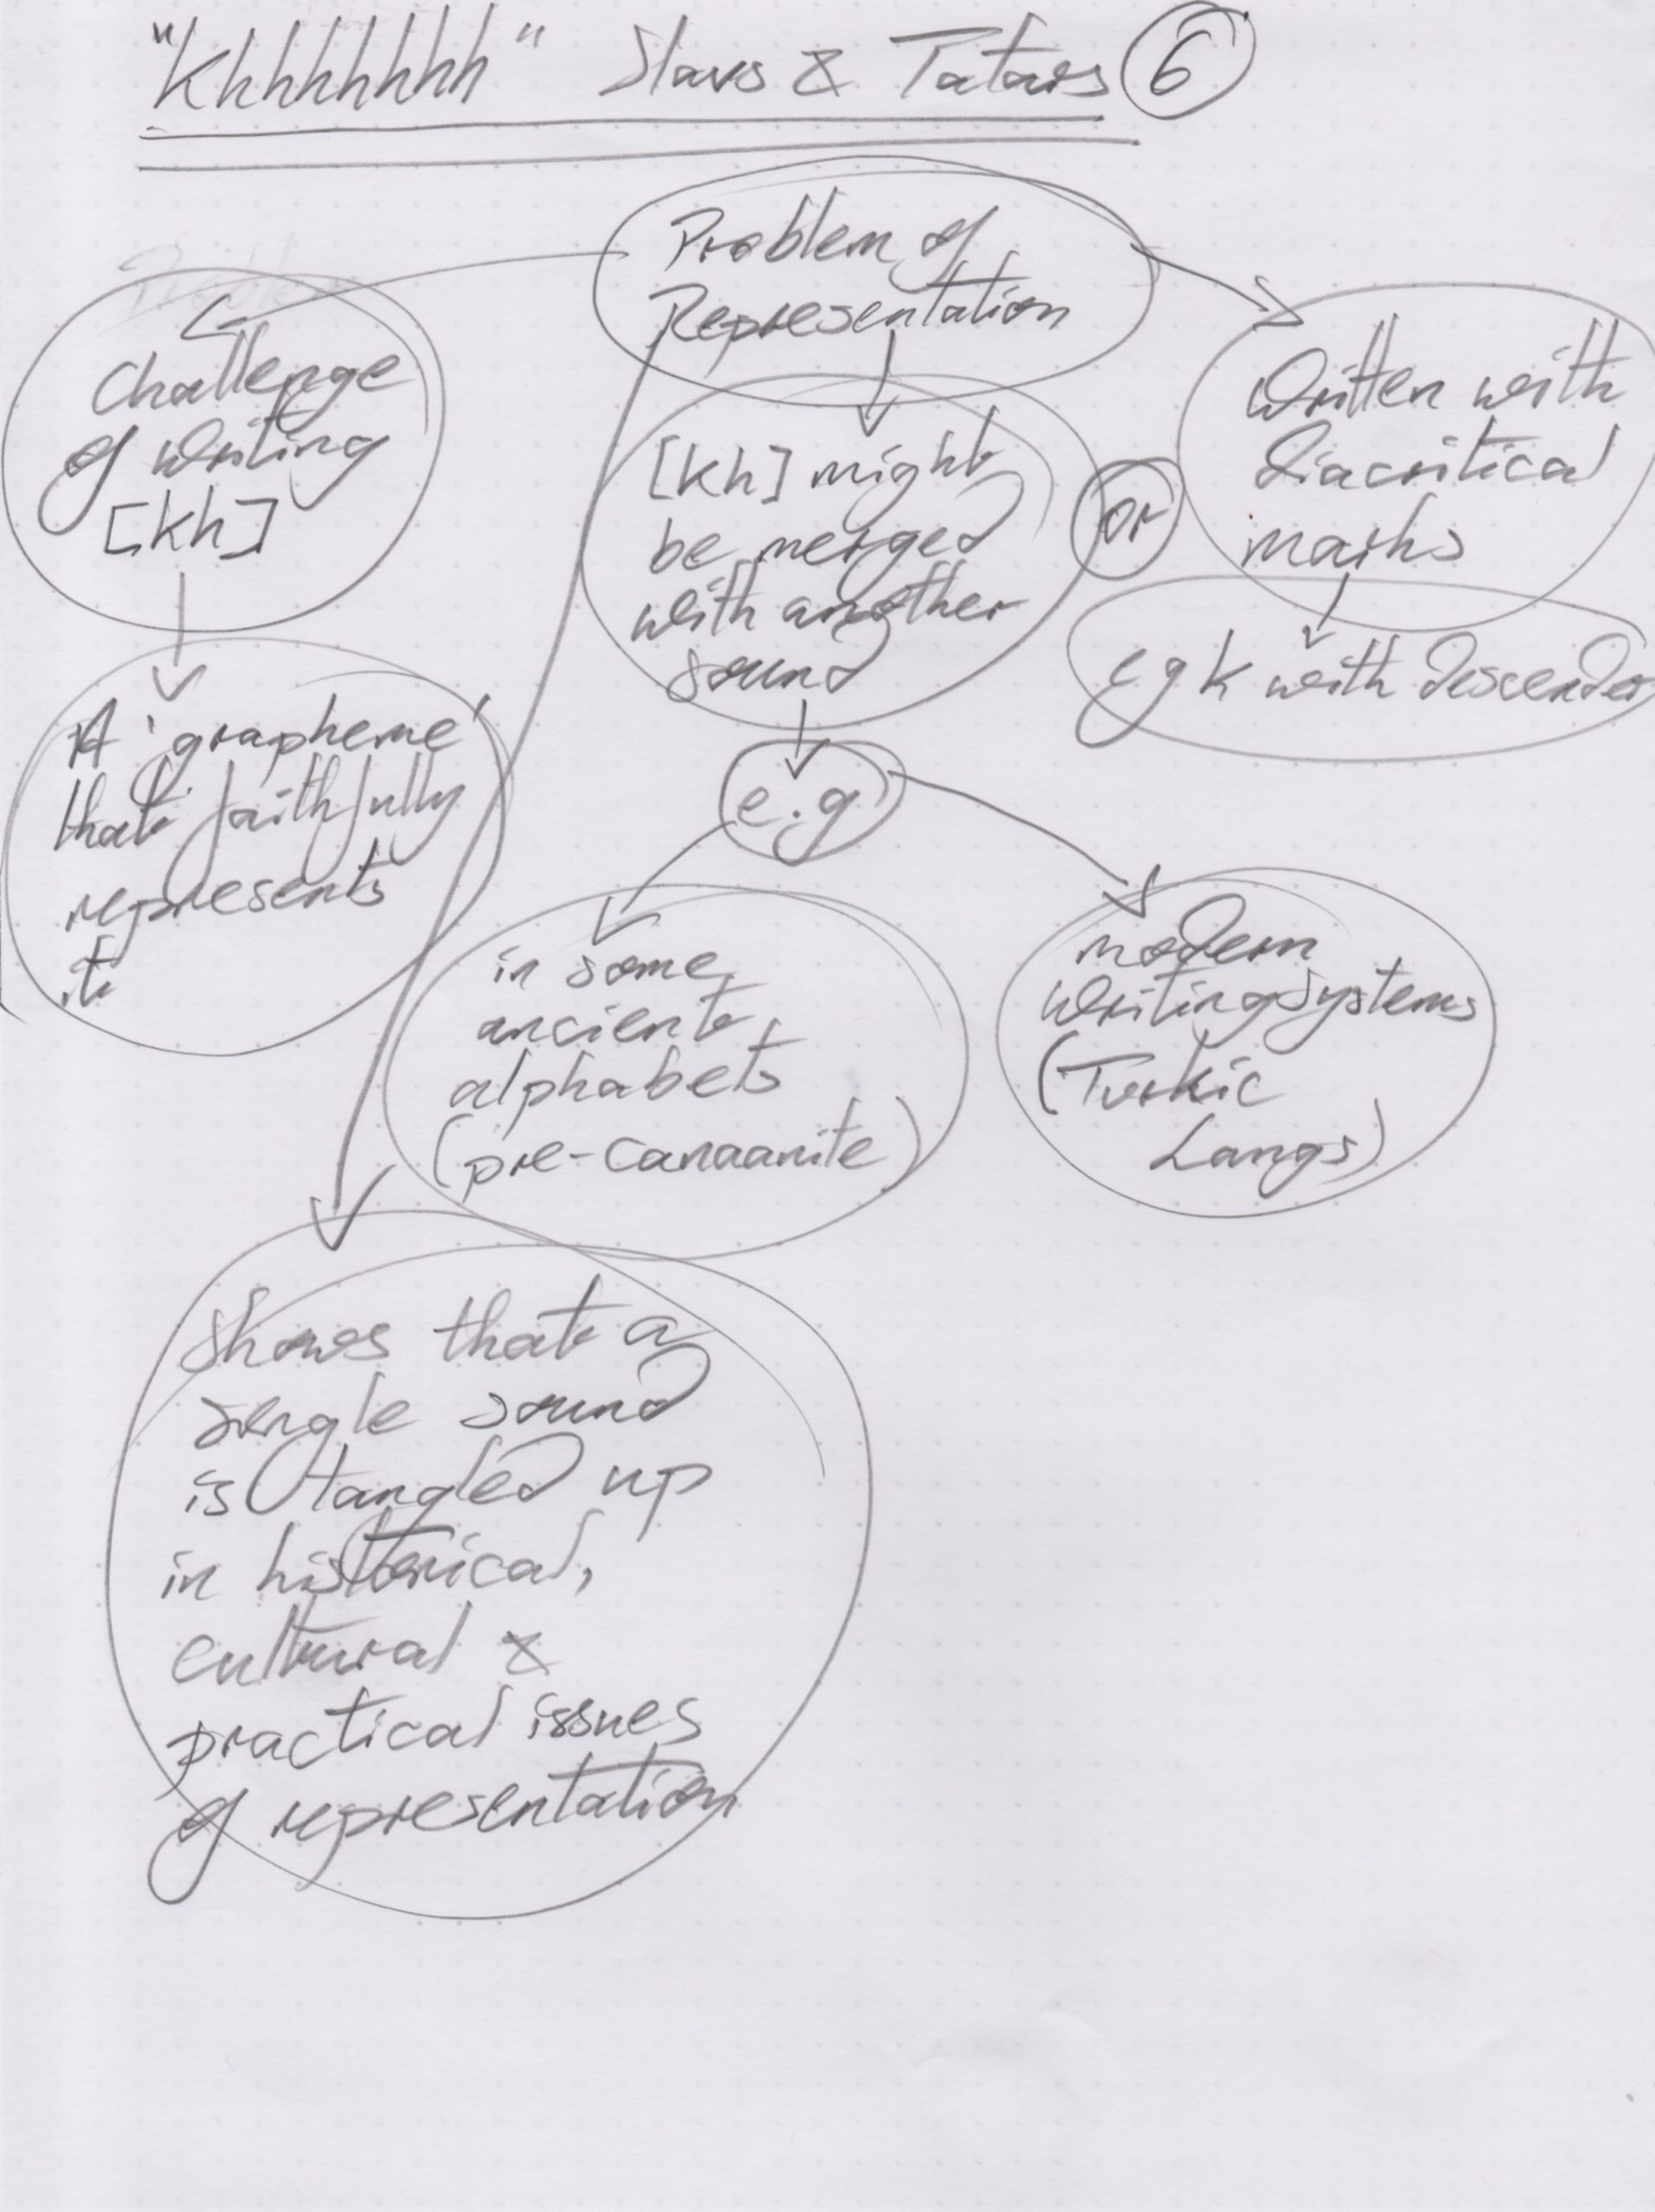 "Khhhhhhh" Slavs & Tatars 6
Problem of
Representation
Challenge
of writing
[kh]
A 'grapheme'
that faithfully
represents
it
[kh] might
be merged
with another
sound
or
written with
diacritical
marks
eg k with descender
e.g
in some
ancient
alphabets
(pre-canaanite)
modern
writing systems
(Turkic
Langs)
Shows that a
single sound
is tangled up
in historical,
cultural &
practical issues
of representation